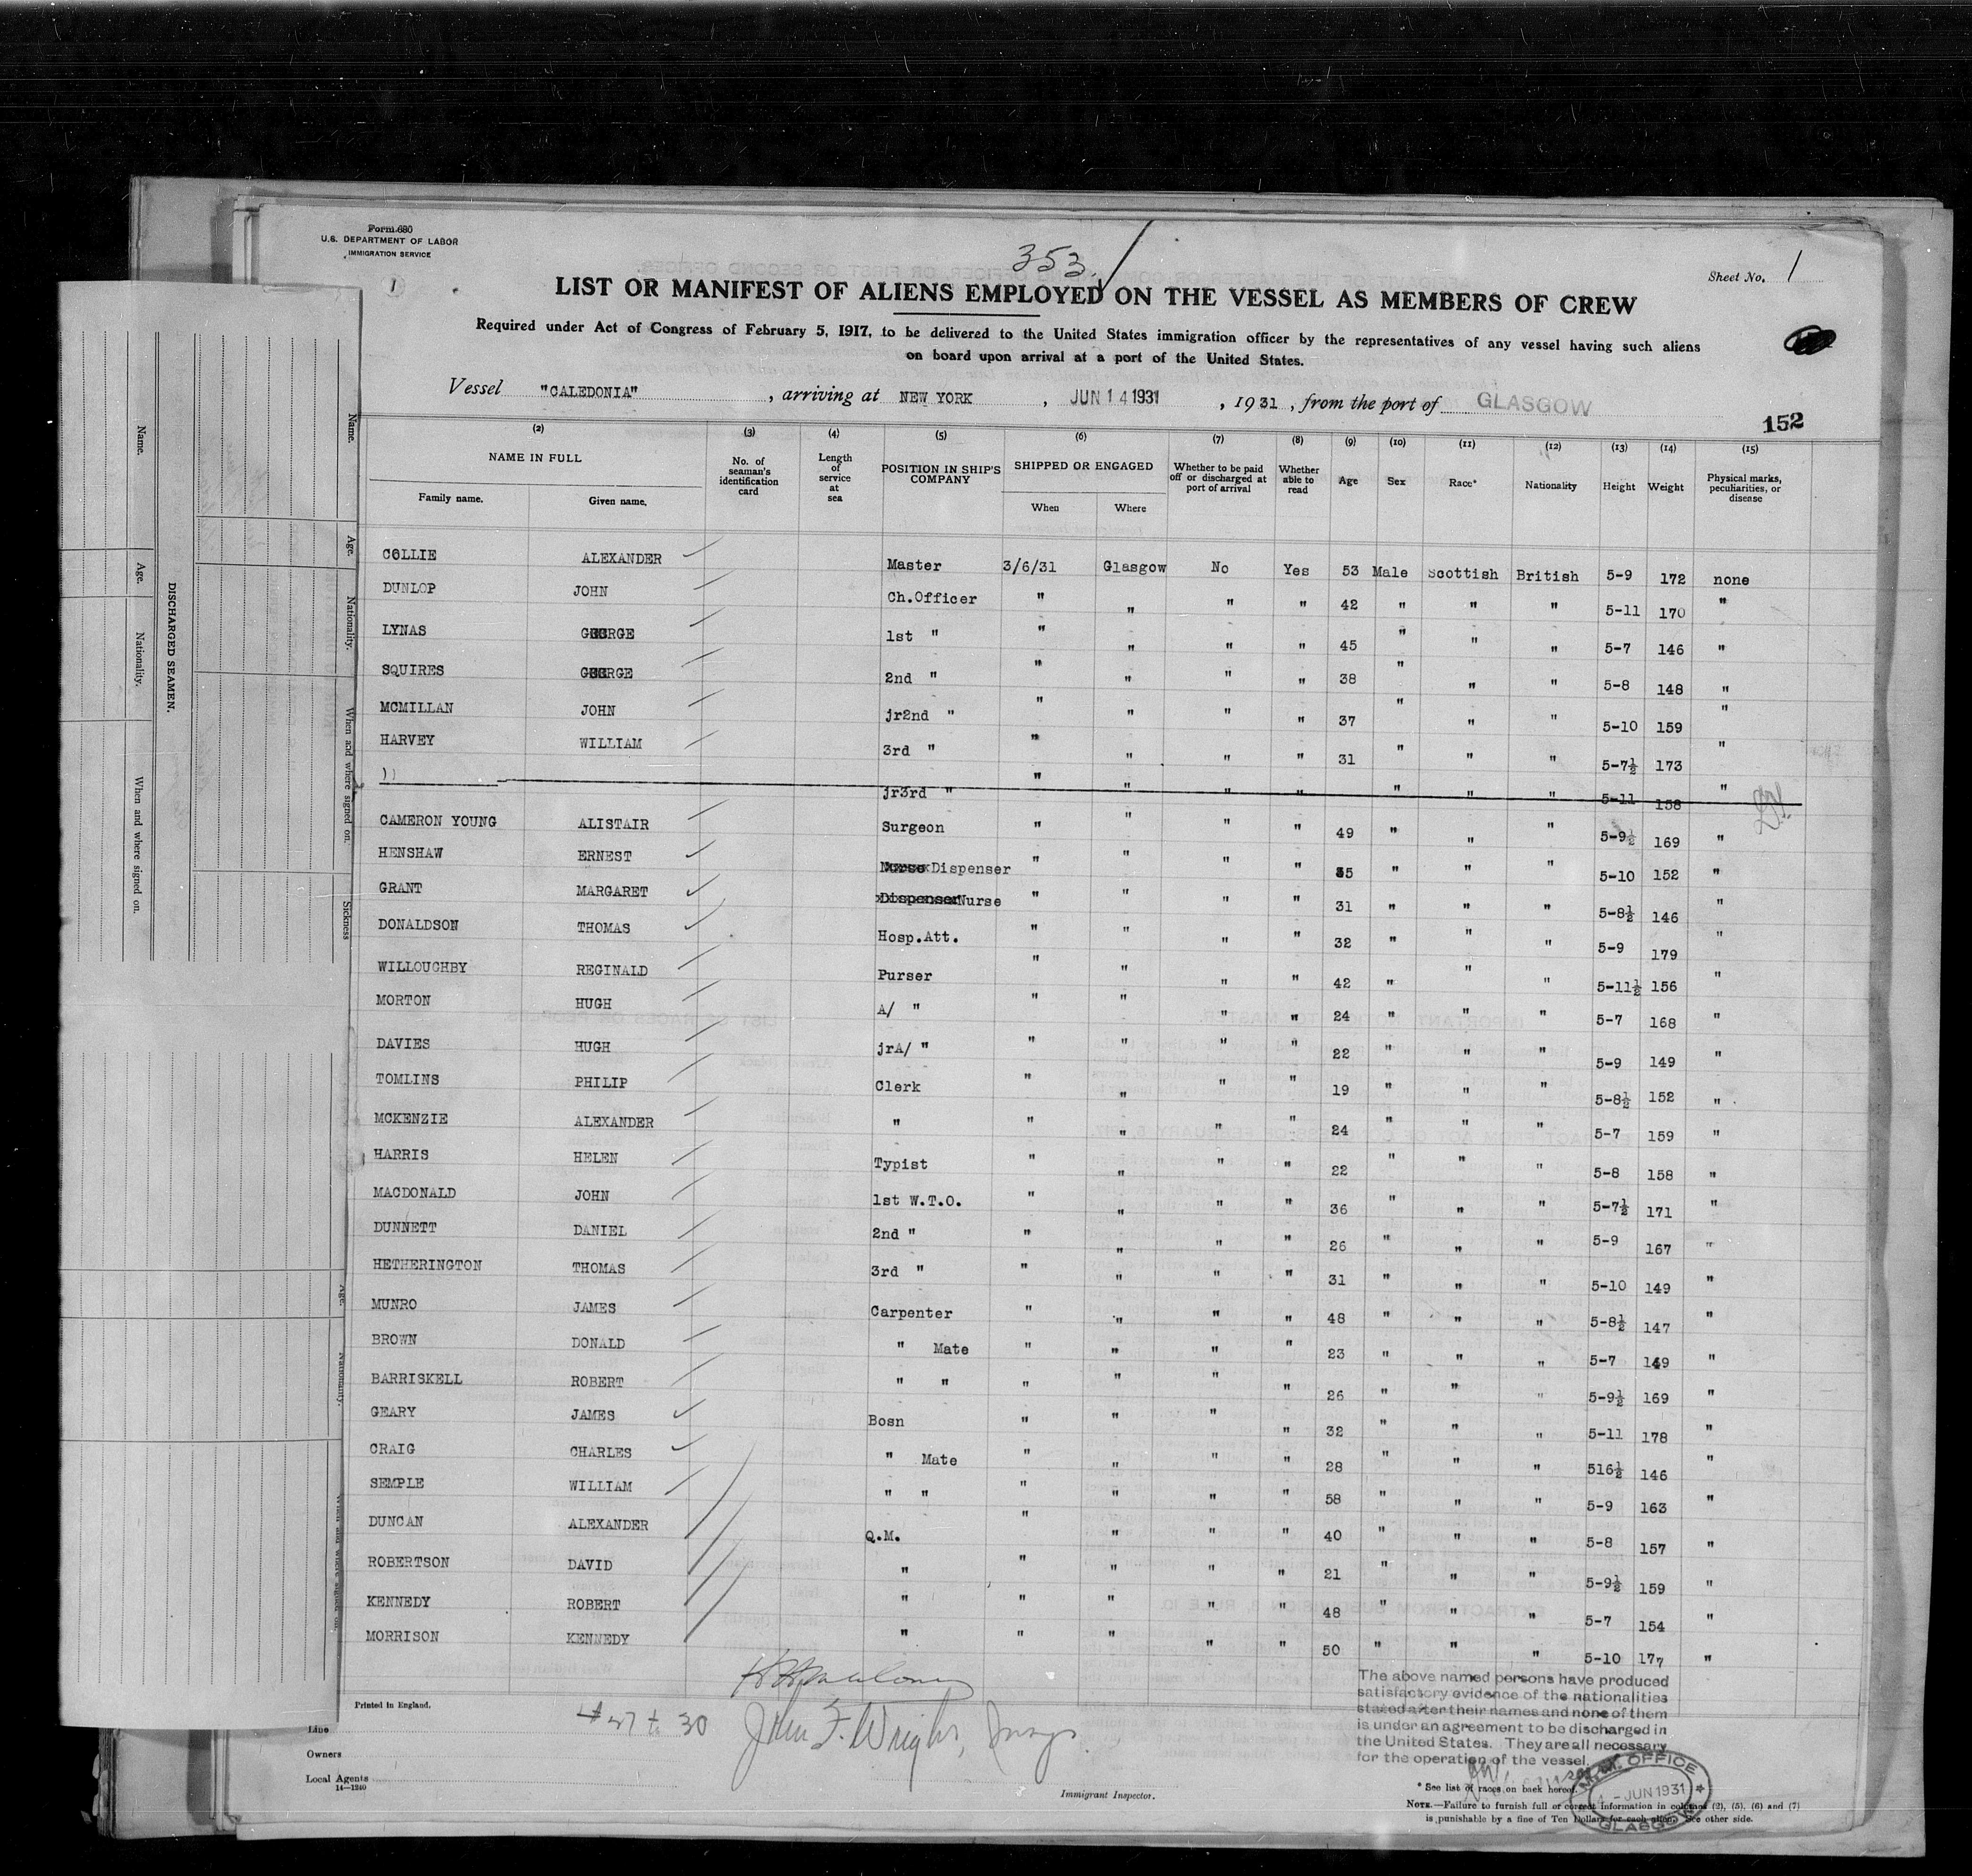 Form 680
U.S. DEPARTMENT OF LABOR
IMMIGRATION SERVICE
1
353.
Sheet No. 1
LIST OR MANIFEST OF ALIENS EMPLOYED ON THE VESSEL AS MEMBERS OF CREW
Required under Act of Congress of February 5, 1917, to be delivered to the United States immigration officer by the representatives of any vessel having such aliens
on board upon arrival at a port of the United States.
Vessel "CALEDONIA" , arriving at NEW YORK , JUN 14 1931 , 1931 , from the port of GLASGOW
152
(2) (3) (4) (5) (6) (7) (8) (9) (10) (11) (12) (13) (14) (15)
NAME IN FULL No. of seaman's identification card Length of service at sea POSITION IN SHIP'S COMPANY SHIPPED OR ENGAGED Whether to be paid off or discharged at port of arrival Whether able to read Age Sex Race* Nationality Height Weight Physical marks, peculiarities, or disease
Family name. Given name. When Where
COLLIE ALEXANDER Master 3/6/31 Glasgow No Yes 53 Male Scottish British 5-9 172 none
DUNLOP JOHN Ch.Officer " " " " 42 " " " 5-11 170 "
LYNAS GEORGE 1st " " " " " 45 " " " 5-7 146 "
SQUIRES GEORGE 2nd " " " " " 38 " " " 5-8 148 "
MCMILLAN JOHN jr2nd " " " " " 37 " " " 5-10 159 "
HARVEY WILLIAM 3rd " " " " " 31 " " " 5-7½ 173 "
)) jr3rd " " " " " " " " 5-11 158 "
CAMERON YOUNG ALISTAIR Surgeon " " " " 49 " " " 5-9½ 169 "
HENSHAW ERNEST Nurse Dispenser " " " " 35 " " " 5-10 152 "
GRANT MARGARET Dispenser Nurse " " " " 31 " " " 5-8½ 146 "
DONALDSON THOMAS Hosp.Att. " " " " 32 " " " 5-9 179 "
WILLOUGHBY REGINALD Purser " " " " 42 " " " 5-11½ 156 "
MORTON HUGH A/ " " " " " 24 " " " 5-7 168 "
DAVIES HUGH jrA/ " " " " " 22 " " " 5-9 149 "
TOMLINS PHILIP Clerk " " " " 19 " " " 5-8½ 152 "
MCKENZIE ALEXANDER " " " " " 24 " " " 5-7 159 "
HARRIS HELEN Typist " " " " 22 " " " 5-8 158 "
MACDONALD JOHN 1st W.T.O. " " " " 36 " " " 5-7½ 171 "
DUNNETT DANIEL 2nd " " " " " 26 " " " 5-9 167 "
HETHERINGTON THOMAS 3rd " " " " " 31 " " " 5-10 149 "
MUNRO JAMES Carpenter " " " " 48 " " " 5-8½ 147 "
BROWN DONALD " Mate " " " " 23 " " " 5-7 149 "
BARRISKELL ROBERT " " " " " " 26 " " " 5-9½ 169 "
GEARY JAMES Bosn " " " " 32 " " " 5-11 178 "
CRAIG CHARLES " Mate " " " " 28 " " " 516½ 146 "
SEMPLE WILLIAM " " " " " " 58 " " " 5-9 163 "
DUNCAN ALEXANDER Q.M. " " " " 40 " " " 5-8 157 "
ROBERTSON DAVID " " " " " 21 " " " 5-9½ 159 "
KENNEDY ROBERT " " " " " 48 " " " 5-7 154 "
MORRISON KENNEDY " " " " " 50 " " " 5-10 177 "
The above named persons have produced
satisfactory evidence of the nationalities
stated after their names and none of them
is under an agreement to be discharged in
the United States. They are all necessary
for the operation of the vessel.
Printed in England.
# 27 to 30 John F. Wright,
Line
Owners
Local Agents
14—1240
Immigrant Inspector.
* See list of races on back hereof.
NOTE.—Failure to furnish full or correct information in columns (2), (5), (6) and (7)
is punishable by a fine of Ten Dollars for each alien. See other side.
M.M. OFFICE
- JUN 1931
GLASGOW
Name.
Age.
Nationality.
When and where signed on.
DISCHARGED SEAMEN.
Name.
Age.
Nationality.
When and where signed on.
Sickness
Age.
Nationality.